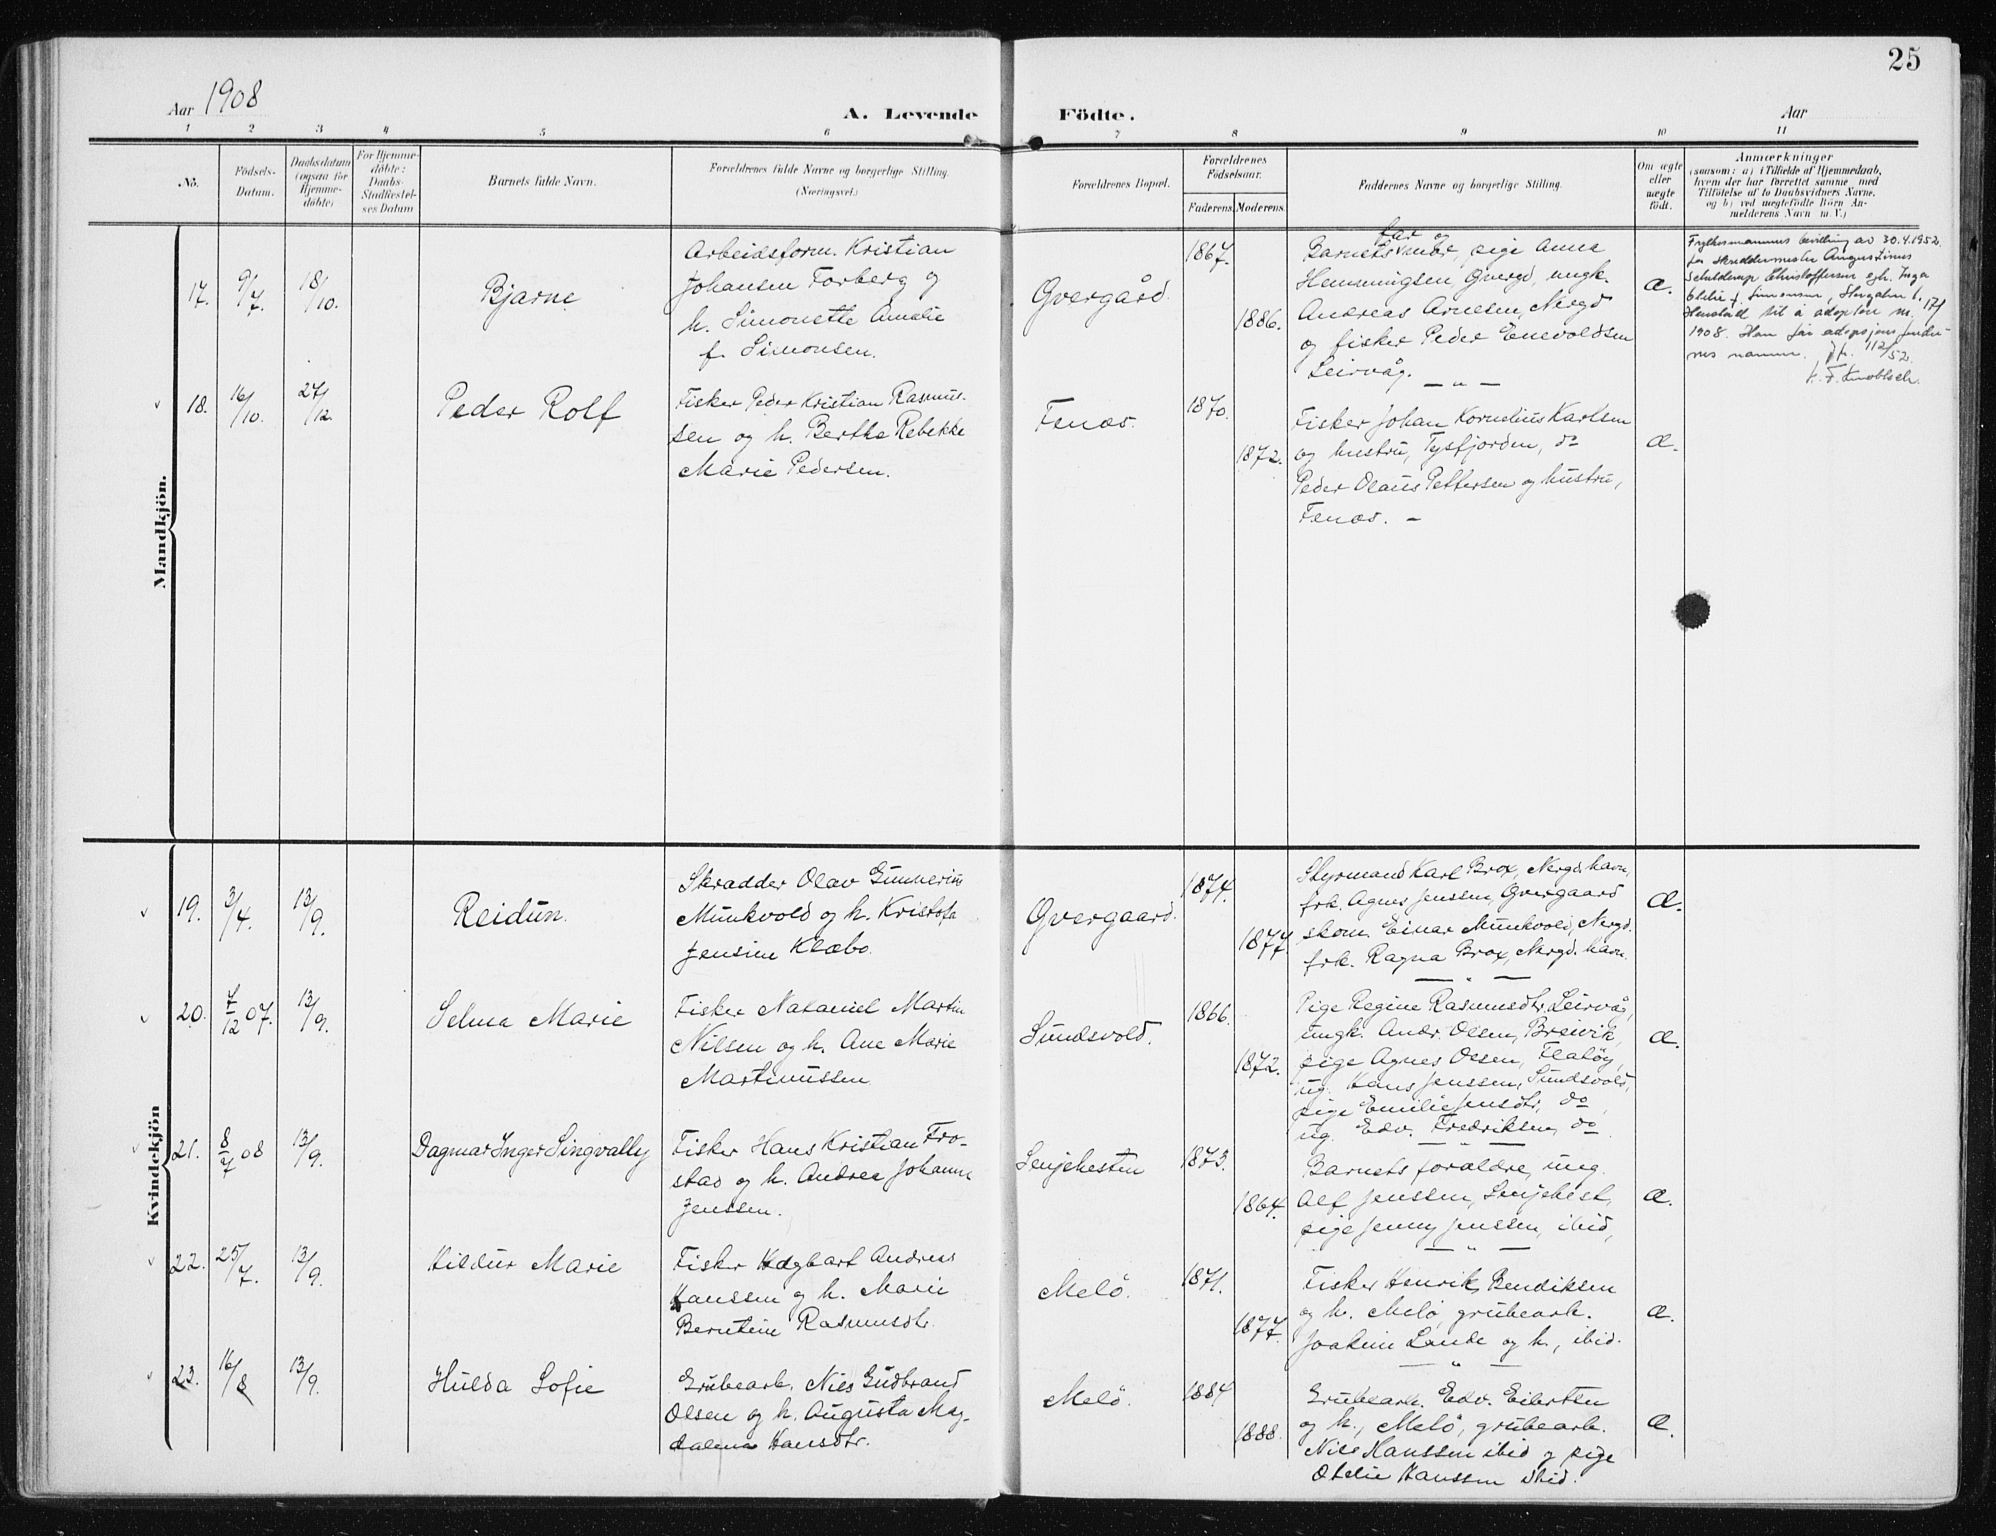 25
Aar 1908
A. Levende Födte.
Aar
1 2 3 4 5 6 7 8 9 10 11
No.
Födsels-Datum.
Daabsdatum (ogsaa for Hjemme-döbte)
For Hjemme-döbte: Daabs-Stadfæstel-ses Datum
Barnets fulde Navn.
Forældrenes fulde Navne og borgerlige Stilling. (Næringsvei.)
Forældrenes Bopæl.
Forældrenes Födselsaar.
Faderens. Moderens.
Faddernes Navne og borgerlige Stilling.
Om ægte eller uægte födt.
Anmærkninger
(saasom: a) i Tilfælde af Hjemmedaab,
hvem der har forrettet samme med
Tilföielse af to Daabsvidners Navne.
og b) ved uegtefödte Börn An-
melderens Navn m. V.)
Mandkjön.
17. 9/7. 18/10.
Bjarne
Arbeidsform. Kristian
Johansen Forberg og
h. Simonette Amalie
f. Simonsen.
Qvergård.
1867.
1886.
far og
Barnets moder, pige Anna
Hemmingsen, Qvergd, ungk.
Andreas Arnesen, Nergd
og fisker Peder Enevoldsen
Leirvåg.
— " —
æ.
Fylkesmannens bevilling av 30.4.1952
for skreddermester Angus Linus
Schelderup Christoffersen egh. Inga
f. Simonsen,
til å adoptere nr. 17/
1908. Han får adopsjons
nes navn. Jfr. 112/52.
18. 16/10. 27/12.
Peder Rolf
Fisker Peder Kristian Rasmus-
sen og h. Berthe Rebekke
Marie Pedersen.
Fenæs.
1870.
1872.
Fisker Johan Kornelius Karlsen
og hustru, Tysfjorden, do
Peder Olaus Pettersen og hustru,
Fenæs. —
æ.
Kvindekjön
19. 3/4. 13/9.
Reidun.
Skrædder Olav Gunnerius
Munkvold og h. Kristofa
Jensine Klæbo.
Qvergaard.
1874.
1877.
Styrmand Karl Brox, Nergd. havn,
frk. Agnes Jenssen, Qvergaard
skom. Einar Munkvold, Nergd.
frk. Ragna Brox, Nergd. havn.
— " —
æ.
20. 7/12 07. 13/9.
Selma Marie
Fisker Nataniel Martin
Nilsen og h. Ane Marie
Martinussen
Sundsvold.
1866.
1872.
Pige Regine Rasmusdtr, Leirvåg,
ungk. Andr. Olsen, Breivik,
pige Agnes Olsen, Flatöy,
ug. Hans Jenssen, Sundsvold,
pige Emilie Jensdtr, do,
ug. Edv. Fredriksen, do
æ.
21. 8/7 08 13/9.
Dagmar Inger Singvally
Fisker Hans Kristian Fro-
stad og h. Andrea Johanne
Jenssen.
Senjehesten
1873.
1864.
Barnets forældre, ung.
Alf Jenssen, Senjehest,
pige Jenny Jenssen, ibid,
— " —
æ.
22. 25/7. 13/9.
Hildur Marie
Fisker Hagbart Andreas
Hanssen og h. Marie
Berntine Rasmusdtr.
Melö.
1871.
1877.
Fisker Henrik Bendiksen
og h. Melö, grubearb.
Joakim Lande og h., ibid.
— " —
æ.
23. 16/8 13/9.
Hulda Sofie
Grubearb. Nils Gudbrand
Olsen og h. Augusta Mag-
dalena Hansdtr.
Melö.
1884
1888.
Grubearb. Edv. Eibertsen
og h., Melö, grubearb.
Nils Hanssen ibid og pige
Otelie Hanssen ibid.
æ.